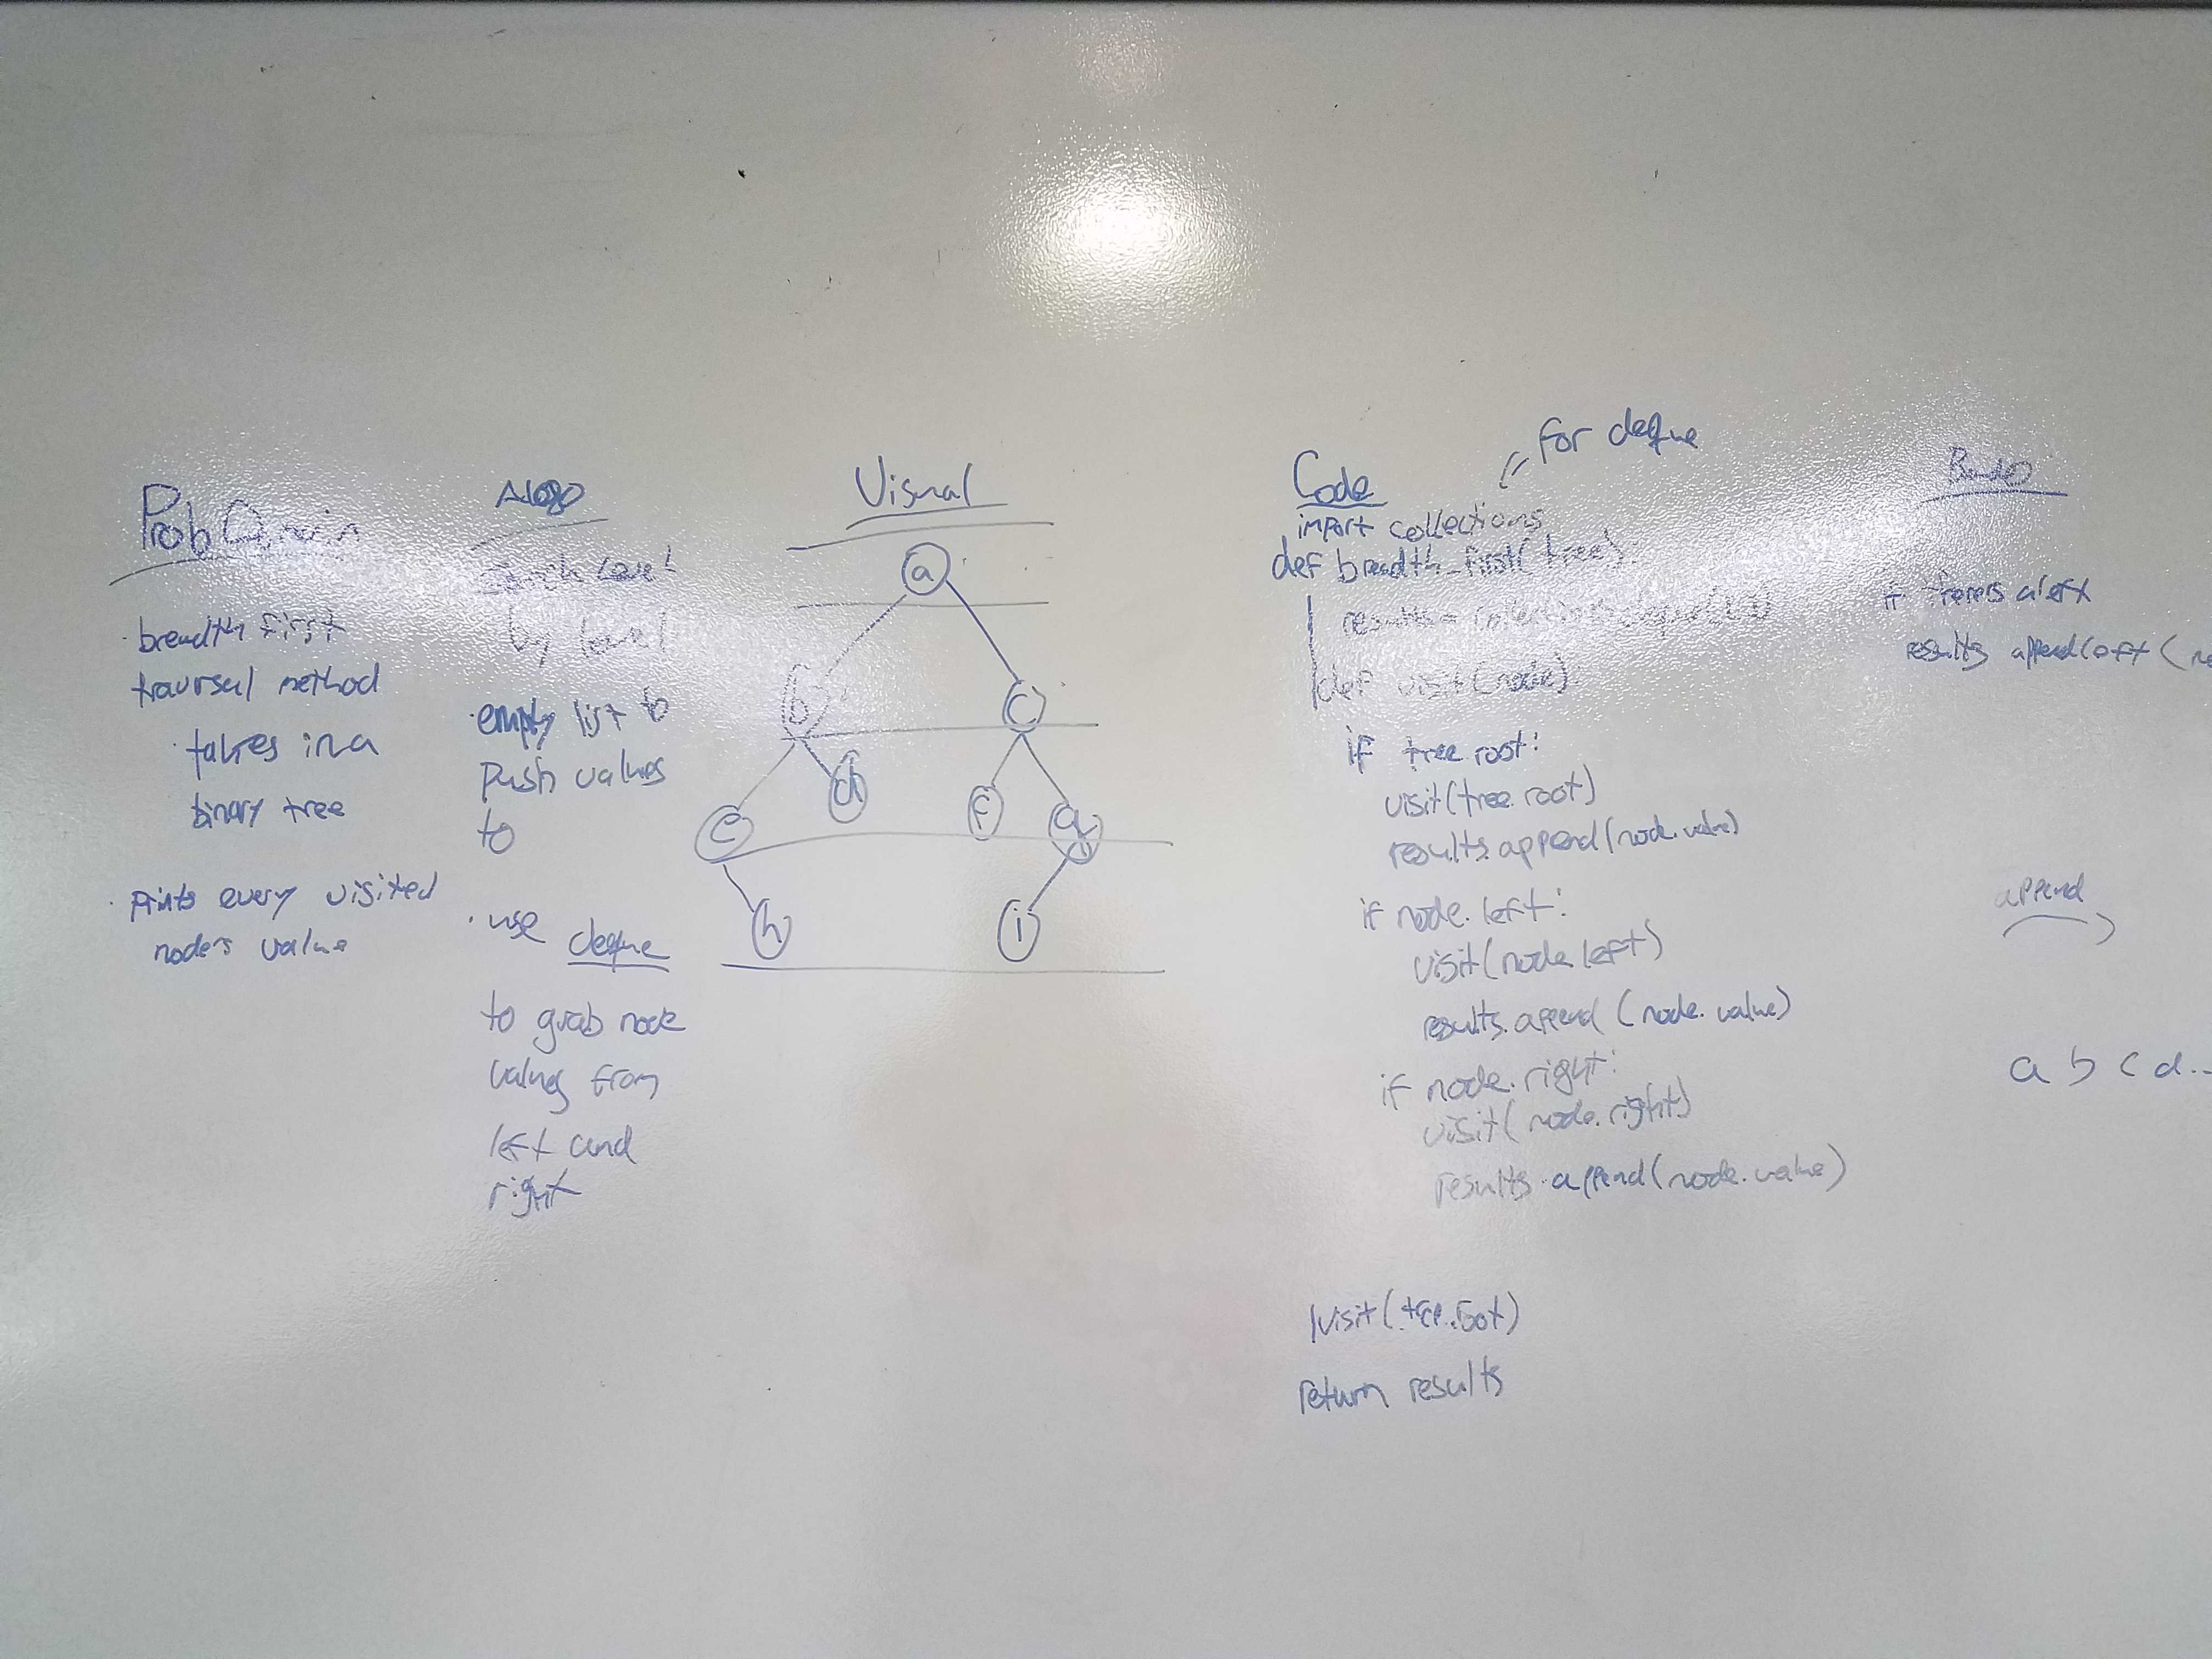 Prob Domain
· breadth first
traversal method
· takes in a
binary tree
· prints every visited
node's value
Algo
level
by level
· empty list to
push values
to
· use deque
to grab node
values from
left and
right
Visual
a
b
c
e
d
f
g
h
i
Code
for deque
import collections
def breadth_first(tree):
results = collections.deque([])
def visit(node):
if tree.root:
visit(tree.root)
results.append(node.value)
if node.left:
visit(node.left)
results.append(node.value)
if node.right:
visit(node.right)
results.append(node.value)
visit(tree.root)
return results
if
results appendleft (
append
a b c d...